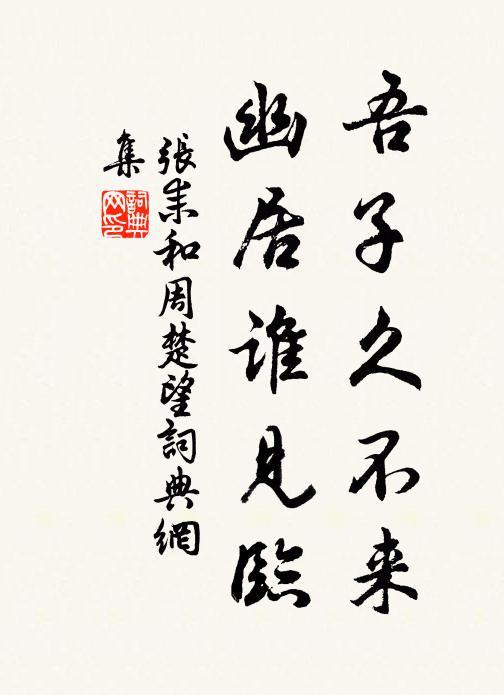 吾子久不来
幽居谁见臨
張耒和周楚望詞典網
集
詞典
网印